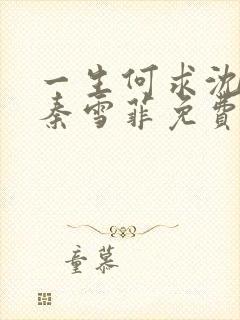 一生何求沈
秦雪菲免费
童慕